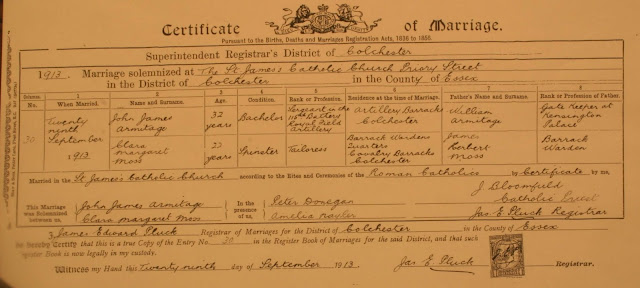 Certificate of Marriage.
Pursuant to the Births, Deaths and Marriages Registration Acts, 1836 to 1898.
Superintendent Registrar's District of Colchester
1913. Marriage solemnized at The St James's Catholic Church Priory Street
in the District of Colchester in the County of Essex
Columns:— 1 2 3 4 5 6 7 8
No. When Married. Name and Surname. Age. Condition. Rank or Profession. Residence at the time of Marriage. Father's Name and Surname. Rank or Profession of Father.
30 Twenty ninth September 1913
John James Armitage 32 years Bachelor Sergeant in the Battery Royal Field Artillery Artillery Barracks Colchester William Armitage Gate Keeper at Kensington Palace
Clara Margaret Moss years Spinster Tailoress Barrack Wardens Quarters Cavalry Barracks Colchester James Herbert Moss Barrack Warden
Married in the St James's Catholic Church according to the Rites and Ceremonies of the Roman Catholics by Certificate by me,
This Marriage was Solemnized between us,
John James Armitage
Clara Margaret Moss
In the presence of us,
Peter Donegan
Amelia
J. Bloomfield
Catholic Priest
Jas E. Pluck Registrar
I, James Edward Pluck Registrar of Marriages for the District of Colchester in the County of Essex
do hereby Certify that this is a true Copy of the Entry No. 30 in the Register Book of Marriages for the said District, and that such
Register Book is now legally in my custody.
Witness my Hand this Twenty ninth day of September 1913. Jas E. Pluck Registrar.